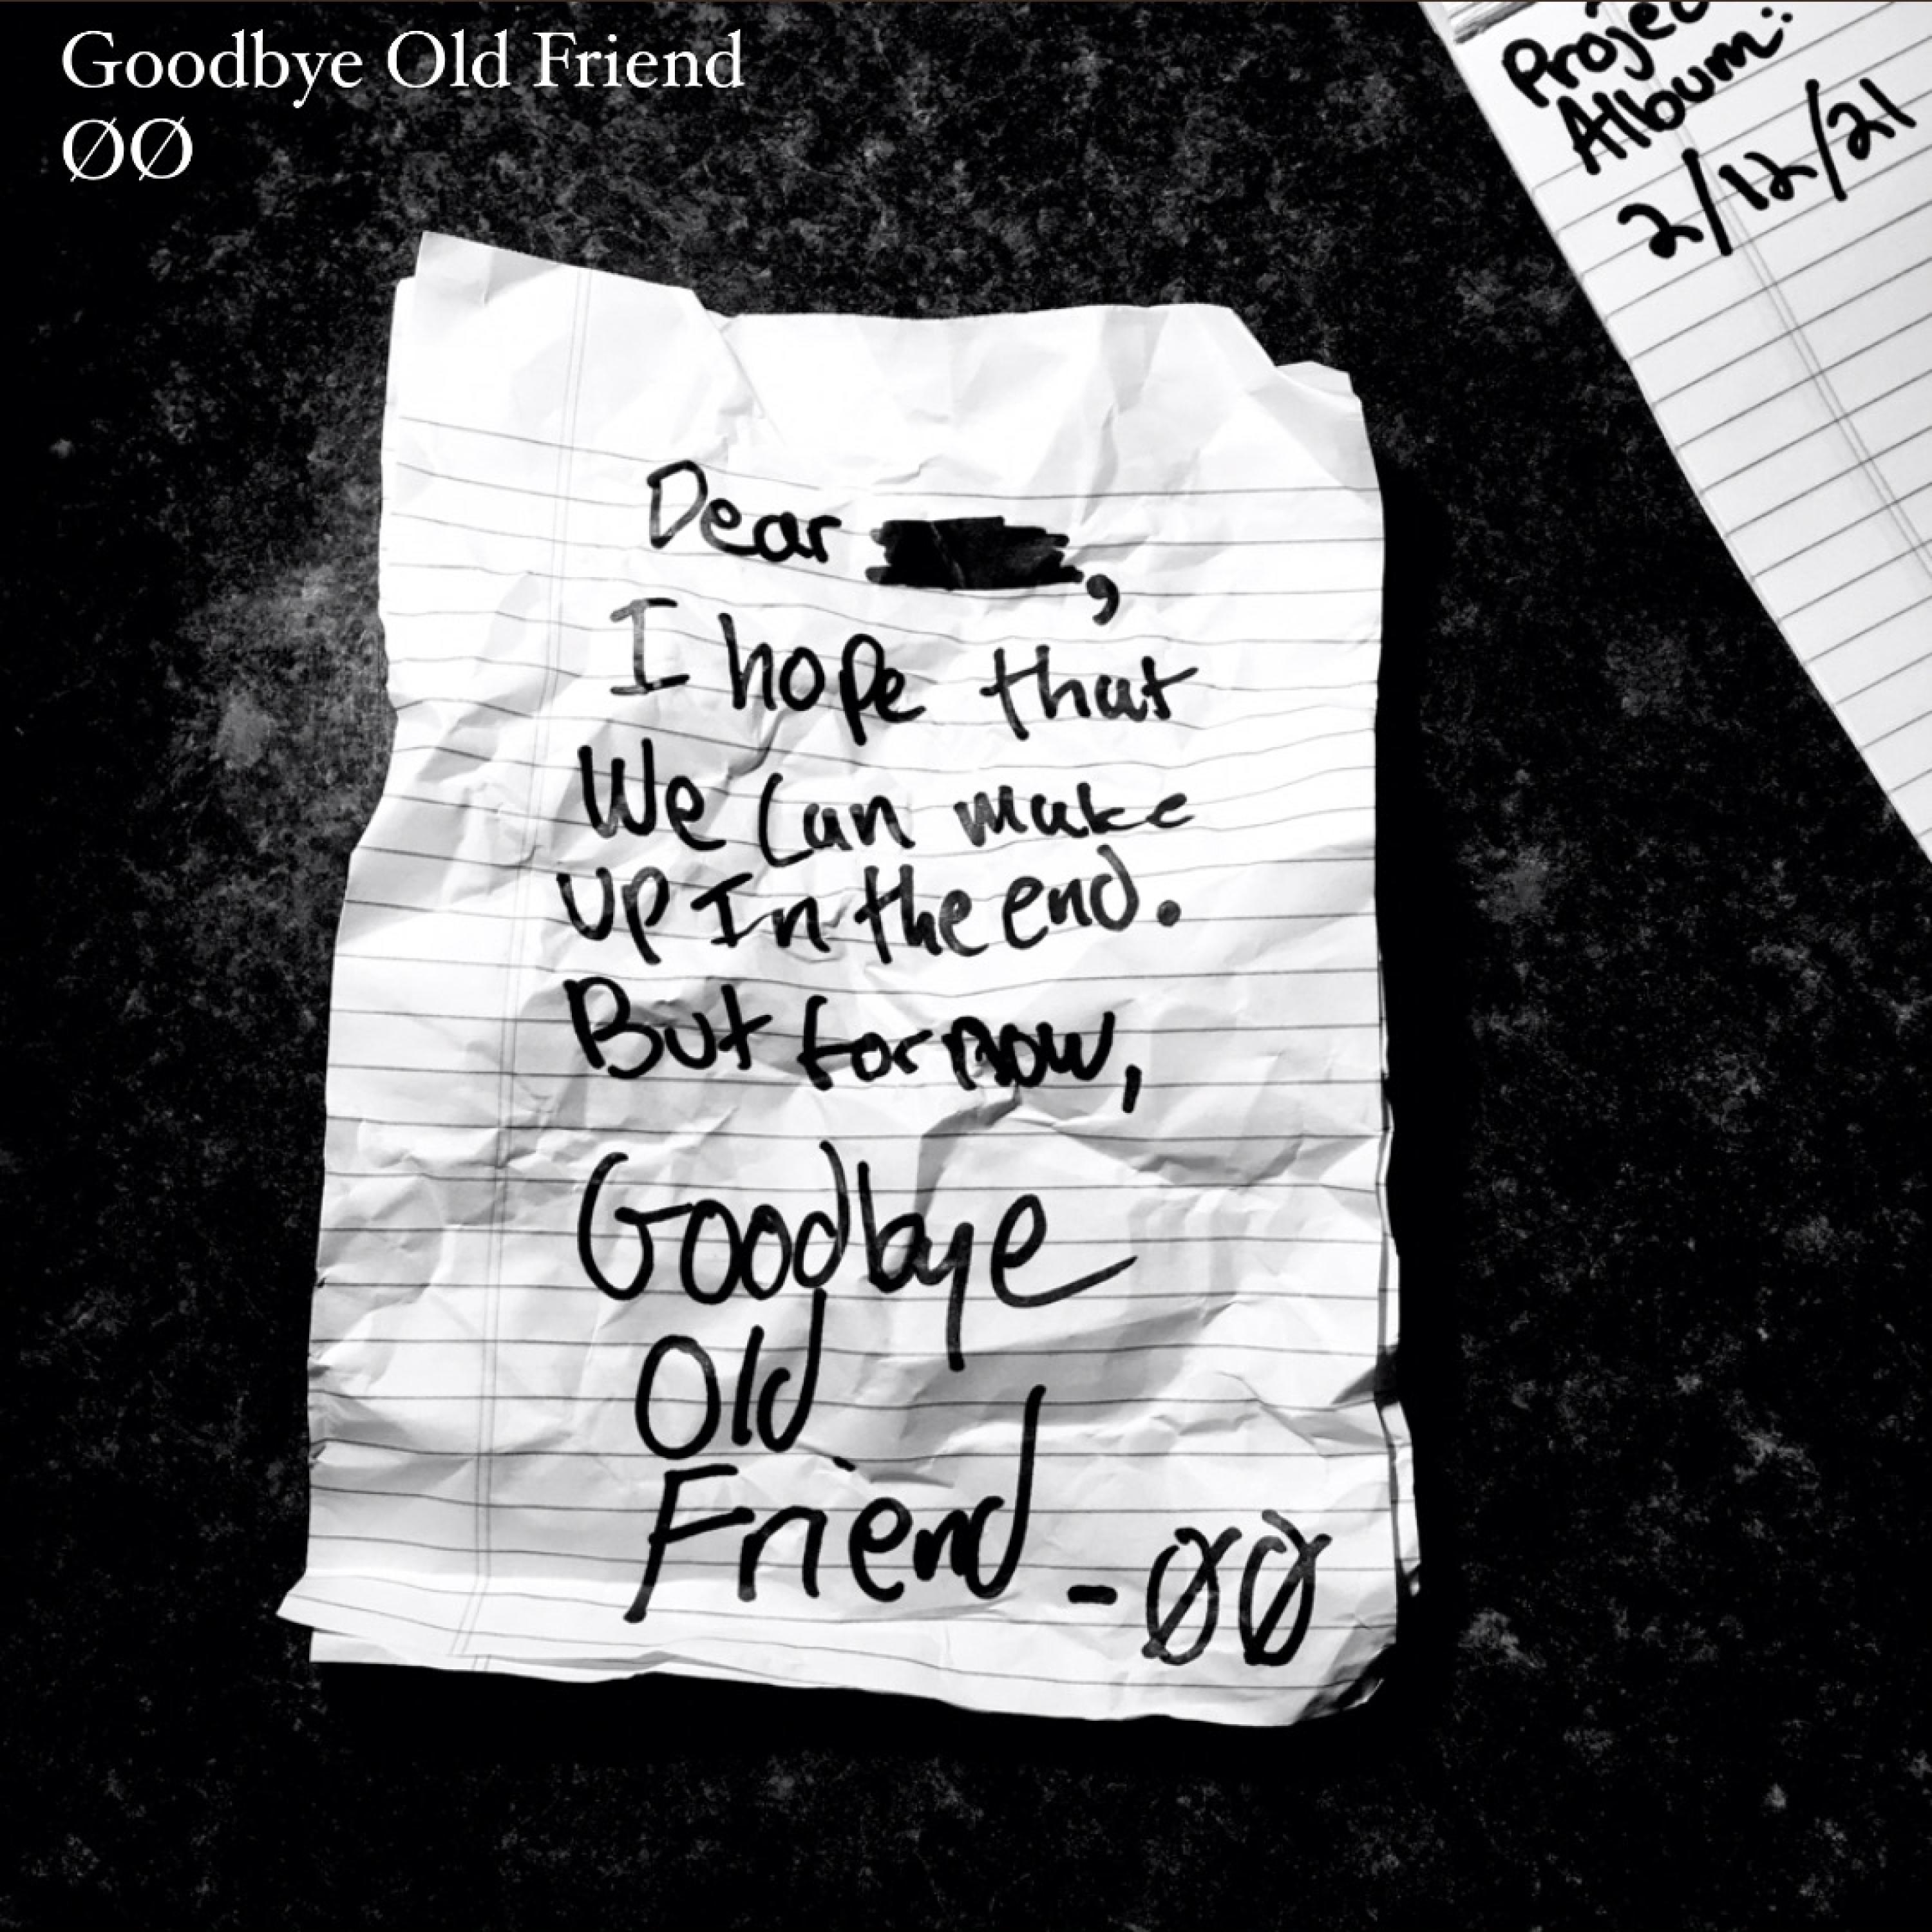 Goodbye Old Friend
ØØ
Album:
2/12/21
Dear ,
I hope that
We Can make
Up In the end.
But for now,
Goodbye
Old
Friend -ØØ